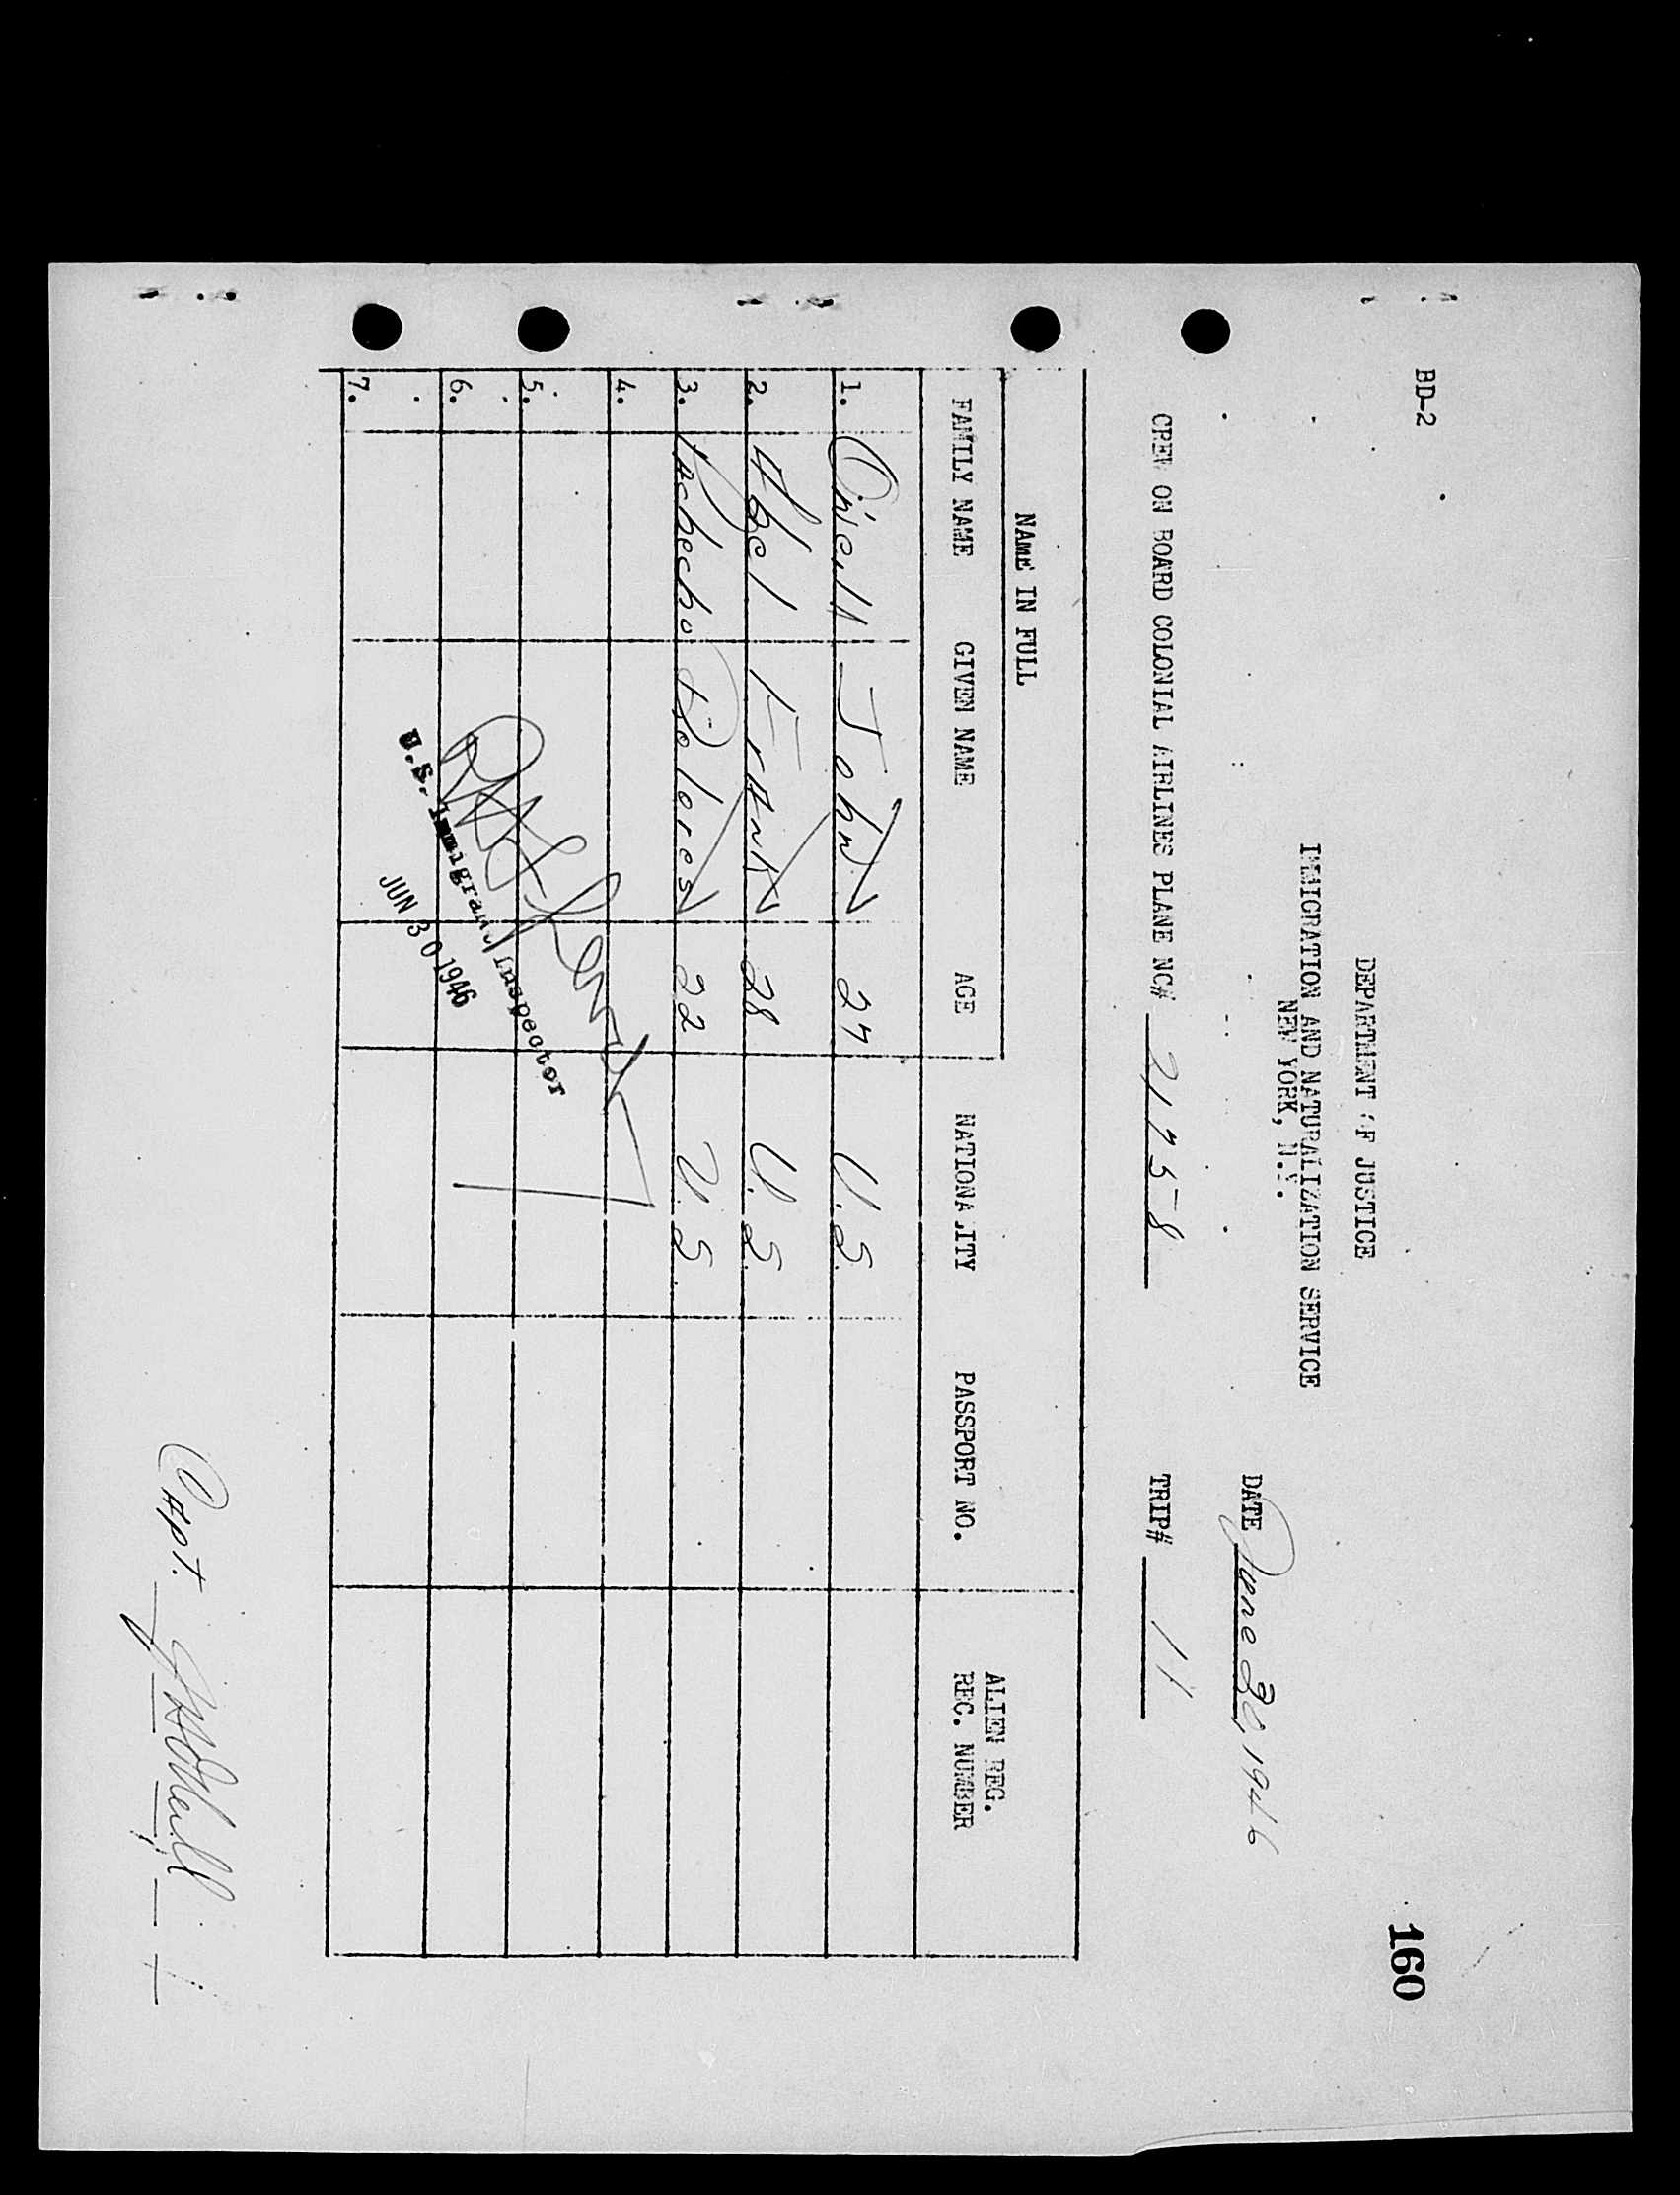 BD-2
160
DEPARTMENT OF JUSTICE
IMMIGRATION AND NATURALIZATION SERVICE
NEW YORK, N.Y.
DATE June 30, 1946
CREW ON BOARD COLONIAL AIRLINES PLANE NC# 21758 TRIP# 11
NAME IN FULL
ALIEN REG.
FAMILY NAME GIVEN NAME AGE NATIONALITY PASSPORT NO. REC. NUMBER
1. O'Neill John 27 U.S.
2. Abel Frank 28 U.S.
3. Pachecho Dolores 22 U.S.
4.
5.
6.
7.
U.S. Immigrant Inspector
JUN 30 1946
Capt. J O'Neill